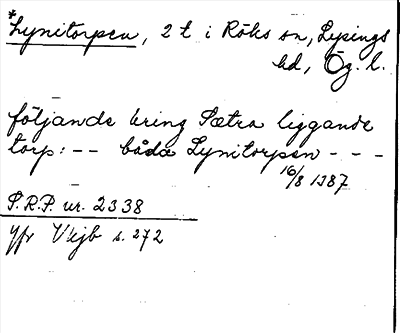 *Lynitorpen, 2 t i Röks sn, Lysings
hd, Ög. l.
följande kring Sætra liggande
torp: -- båda Lynitorpen - - -
16/8 1387
S.R.P. nr. 2338
Vijb s. 272